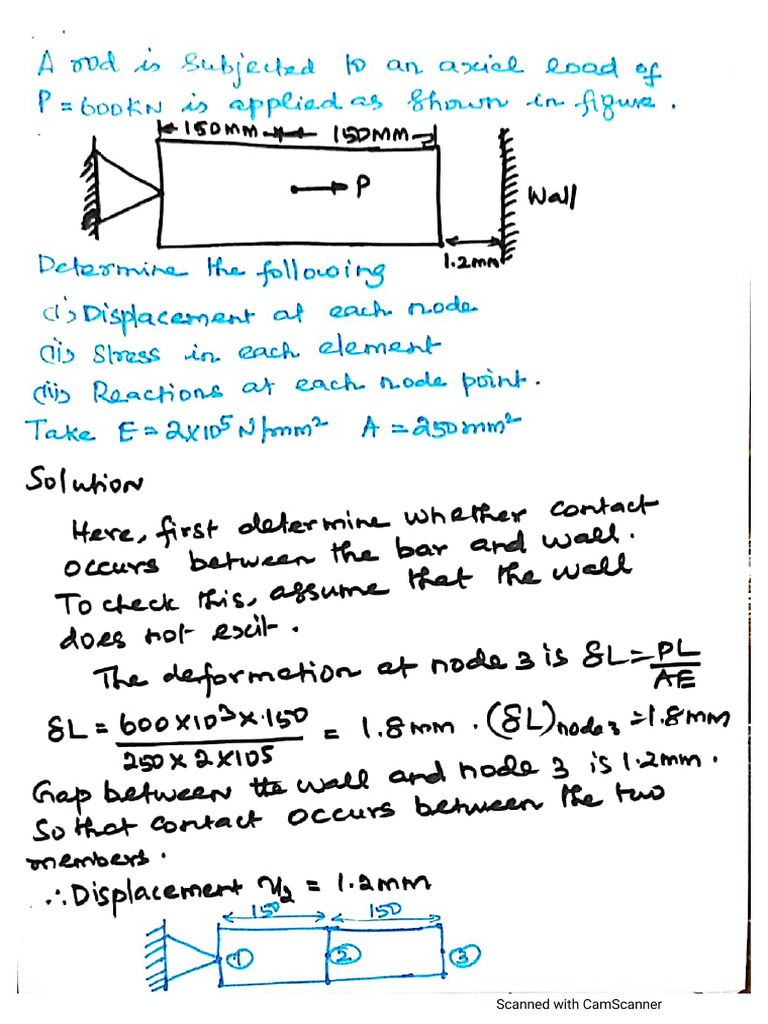 A rod is subjected to an axial load of
P = 600KN is applied as shown in figure.
150MM 150MM
P
Wall
1.2mm
Determine the following
(i) Displacement at each node
(ii) Stress in each element
(iii) Reactions at each node point.
Take E = 2X10⁵ N/mm² A = 250mm²
Solution
Here, first determine whether contact
occurs between the bar and wall.
To check this, assume that the wall
does not exit.
The deformation at node 3 is δL = PL/AE
δL = 600X10³X150/250X2X105 = 1.8mm. (δL)node3 = 1.8mm
Gap between the wall and node 3 is 1.2mm.
So that contact occurs between the two
members.
∴ Displacement u₂ = 1.2mm
150 150
① ② ③
Scanned with CamScanner